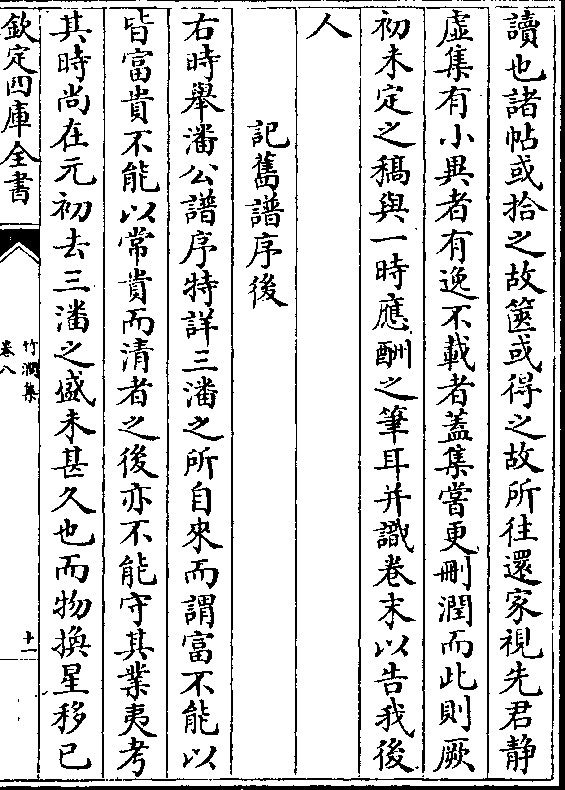 讀也諸帖或拾之故篋或得之故所往還家視先君静
虛集有小異者有逸不載者蓋集嘗更刪潤而此則厥
初未定之稿與一時應酬之筆耳并識卷末以告我後
人
記舊譜序後
右時舉潘公譜序特詳三潘之所自來而謂富不能以
皆富貴不能以常貴而清者之後亦不能守其業夷考
其時尚在元初去三潘之盛未甚久也而物換星移已
欽定四庫全書
竹澗集
卷八
十一